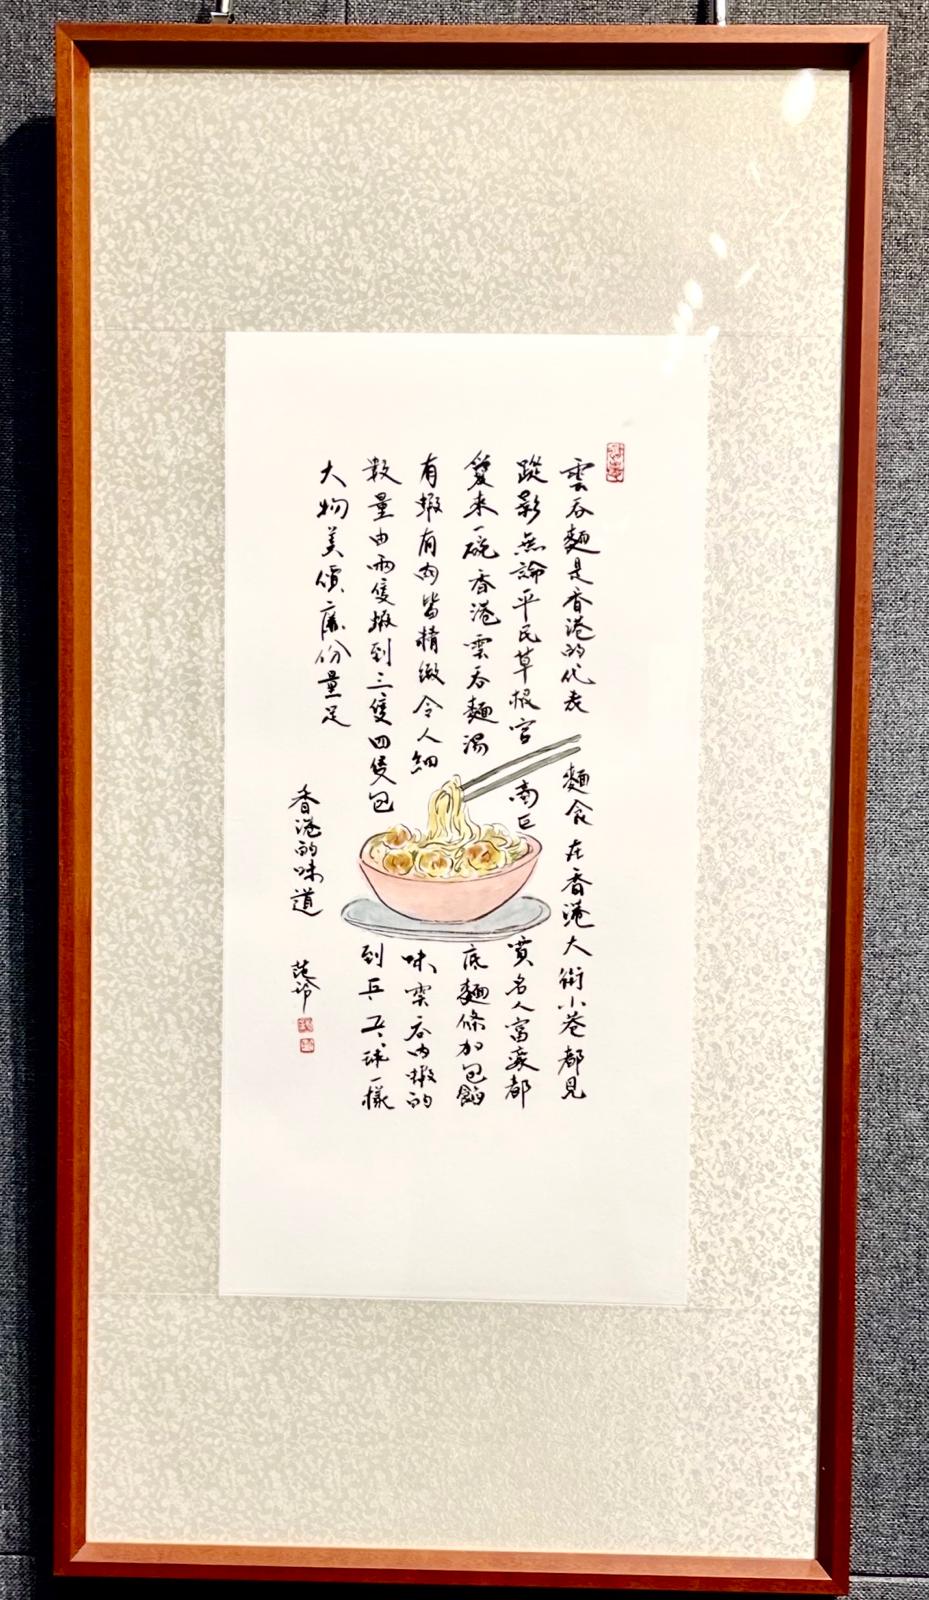 雲吞麵是香港的代表麵食在香港大街小巷都見
蹤影無論平民草根官商巨賈名人富豪都
愛來一碗香港雲吞麵湯底麵條加包餡
有蝦有肉皆精緻令人細味雲吞內蝦的
數量由兩隻蝦到三隻四隻包到乒乓球一樣
大物美價廉份量足
香港的味道
范玲